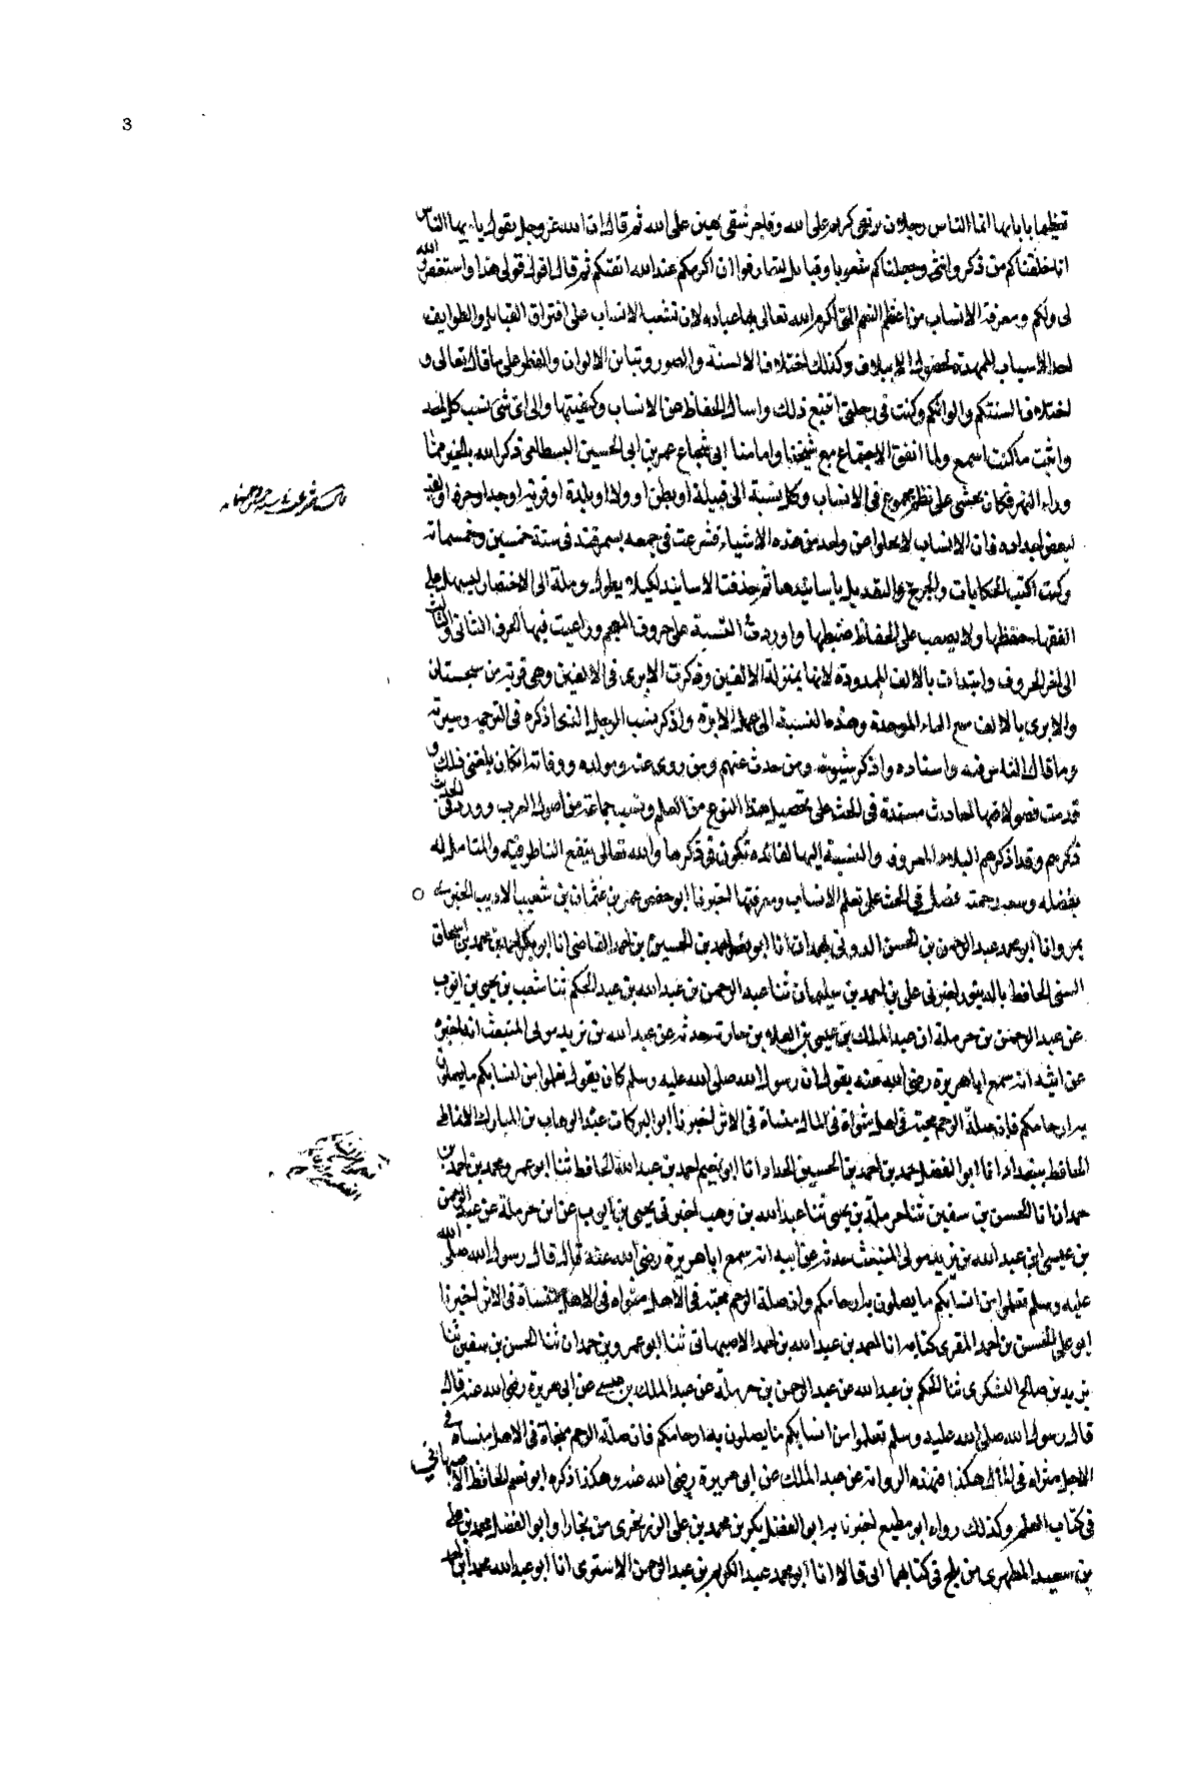 3
تعظيمها بابايها انما الناس رجلان بر تقى كريم على الله وفاجر شقى هين على الله ثم قال ان الله عز وجل يقول يا ايها الناس
انا خلقناكم من ذكر وانثى وجعلناكم شعوبا وقبايل لتعارفوا ان اكرمكم عند الله اتقيكم ثم قال اقول قولى هذا واستغفر الله
لى ولكم ومعرفة الانساب من اعظم النعم التى اكرم الله تعالى بها عباده لان تشعب الانساب على افتراق القبايل والطوايف
احد الاسباب الممهدة لحصول الايتلاف وكذلك اختلاف الالسنة والصور وتباين الالوان والفطر على ما قال تعالى و
اختلاف السنتكم والوانكم وكنت فى رحلتى اتتبع ذلك واسال الحفاظ عن الانساب وكيفيتها والى اى شى نسب كل احد
واثبت ما كنت اسمع ولما اتفق الاجتماع مع شيخنا وامامنا ابى شجاع عمر بن ابى الحسين البسطامى ذكره الله بالخير بما
وراء النهر فكان يحثنى على نظم مجموع فى الانساب وكل نسبة الى قبيلة او بطن او ولاء او بلدة او قرية او جد او حرفة او لقب
لبعض اجداده فان الانساب لا يخلوا عن واحد من هذه الاشياء فشرعت فى جمعه بسمرقند فى سنة خمسين وخمسماية
وكنت اكتب الحكايات والجرح والتعديل باسانيدها ثم حذفت الاسانيد لكيلا يطول وملت الى الاختصار ليسهل على
الفقهاء حفظها ولا يصعب على الحفاظ ضبطها واوردت النسبة على حروف المعجم وراعيت فيها الحرف الثانى والثالث
الى اخر الحروف وابتدات بالالف الممدودة لانها بمنزلة الالفين وذكرت الابرى فى الالفين وهى قرية من سجستان
والابرى بالالف مع الباء الموحدة وهذه النسبة الى عمل الابرة واذكر نسب الرجل الذى اذكره فى الترجمة وسيرته
وما قال الناس فيه واسناده واذكر شيوخه ومن حدث عنهم ومن روى عنه ومولده ووفاته ان كان بلغنى ذلك و
قدمت فصولا فيها احاديث مسندة فى الحث على تحصيل هذا النوع من العلم ونسب جماعة من اصول العرب وورد الحديث فى
ذكرهم وقد اذكرهم البلاد المعروفة والنسبة اليها لفائدة تكون فى ذكرها والله تعالى ينفع الناظر فيه والمتامل له
بفضله وسعة رحمته فصل فى الحث على تعلم الانساب ومعرفتها اخبرنا ابو حفص عمر بن عثمان بن شعيب الاديب الجنزى
بمرو انا ابو محمد عبد الرحمن بن الحسن الدونى بهمدان انا ابو نصر احمد بن الحسين بن احمد القاضى انا ابو بكر احمد بن محمد بن اسحاق
السنى الحافظ بالدينور اخبرنى على بن احمد بن سليمان ثنا عبد الرحمن بن عبد الله بن عبد الحكم ثنا شعب بن يحيى بن ايوب
عن عبد الرحمن بن حرملة ان عبد الملك بن عيسى بن العلاء بن جارية حدثه عن عبد الله بن يزيد مولى المنبعث انه اخبره
عن ابيه انه سمع اباهريرة رضى الله عنه يقول ان رسول الله صلى الله عليه وسلم كان يقول تعلموا من انسابكم ما يصلون
به ارحامكم فان صلة الرحم محبة فى اهل مثراة فى المال منساة فى الاثر اخبرنا ابو البركات عبد الوهاب بن المبارك الانماطى
الحافظ ببغداد انا ابو الفضل حمد بن احمد بن الحسين الحداد انا ابو نعيم احمد بن عبد الله الحافظ ثنا ابو عمرو محمد بن احمد بن
حمدان انا الحسن بن سفين ثنا حرملة بن يحيى ثنا عبد الله بن وهب اخبرنى يحيى بن ايوب عن ابن حرملة عن عبد الرحمن
بن عيسى ابن عبد الله بن يزيد مولى المنبعث حدثه عن ابيه انه سمع اباهريرة رضى الله عنه قال قال رسول الله صلى الله
عليه وسلم تعلموا من انسابكم ما يصلون به ارحامكم وان صلة الرحم محبة فى الاهل مثراة فى الاهل منساة فى الاثر اخبرنا
ابو على الحسن بن احمد المقرى كتابه انا احمد بن عبد الله بن احمد الاصبهانى ثنا ابو عمرو بن حمدان ثنا الحسن بن سفين ثنا
يزيد بن صالح اليشكرى ثنا الحكم بن عبد الله عن عبد الرحمن بن حرملة عن عبد الملك بن عيسى عن ابى هريرة رضى الله عنه قال
قال رسول الله صلى الله عليه وسلم تعلموا من انسابكم ما يصلون به ارحامكم فان صلة الرحم منجاة فى الاهل منساة فى
الاجل مثراة فى المال هكذا فى هذه الرواية عن عبد الملك عن ابى هريرة رضى الله عنه وهكذا ذكره ابو نعيم الحافظ الاصبهانى
فى كتاب العلم وكذلك رواه ابو مطيع اخبرنا به ابو الفضل بكر بن محمد بن على الزرنجرى من بخارا وابو الفضل محمد بن على
بن سعيد المطهرى من بلخ فى كتابهما الى قالا انا ابو محمد عبد الكريم بن عبد الرحمن الاسترى انا ابو عبد الله محمد ابن احمد